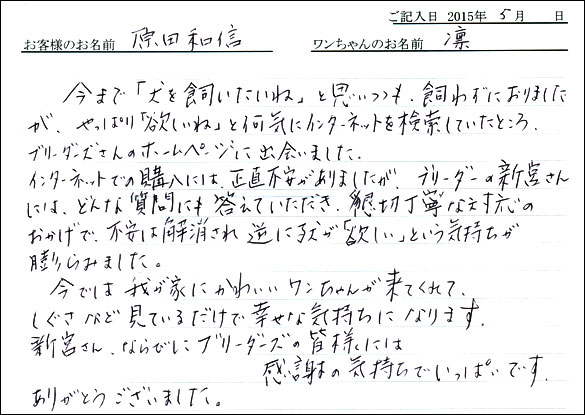 ご記入日 2015年 5月 日
お客様のお名前 原田和信 ワンちゃんのお名前 凛
今まで「犬を飼いたいね」と思いつつも、飼わずにおりました
が、やっぱり「欲しいね」と何気にインターネットを検索していたところ、
ブリーダーズさんのホームページに出会いました。
インターネットでの購入には、正直不安がありましたが、ブリーダーの新宮さん
には、どんな質問にも答えていただき、懇切丁寧な対応の
おかげで、不安は解消され逆に「犬が欲しい」という気持ちが
膨らみました。
今では我が家にかわいいワンちゃんが来てくれて、
しぐさなど見ているだけで幸せな気持ちになります。
新宮さん、ならびにブリーダーズの皆様には
感謝の気持ちでいっぱいです。
ありがとうございました。